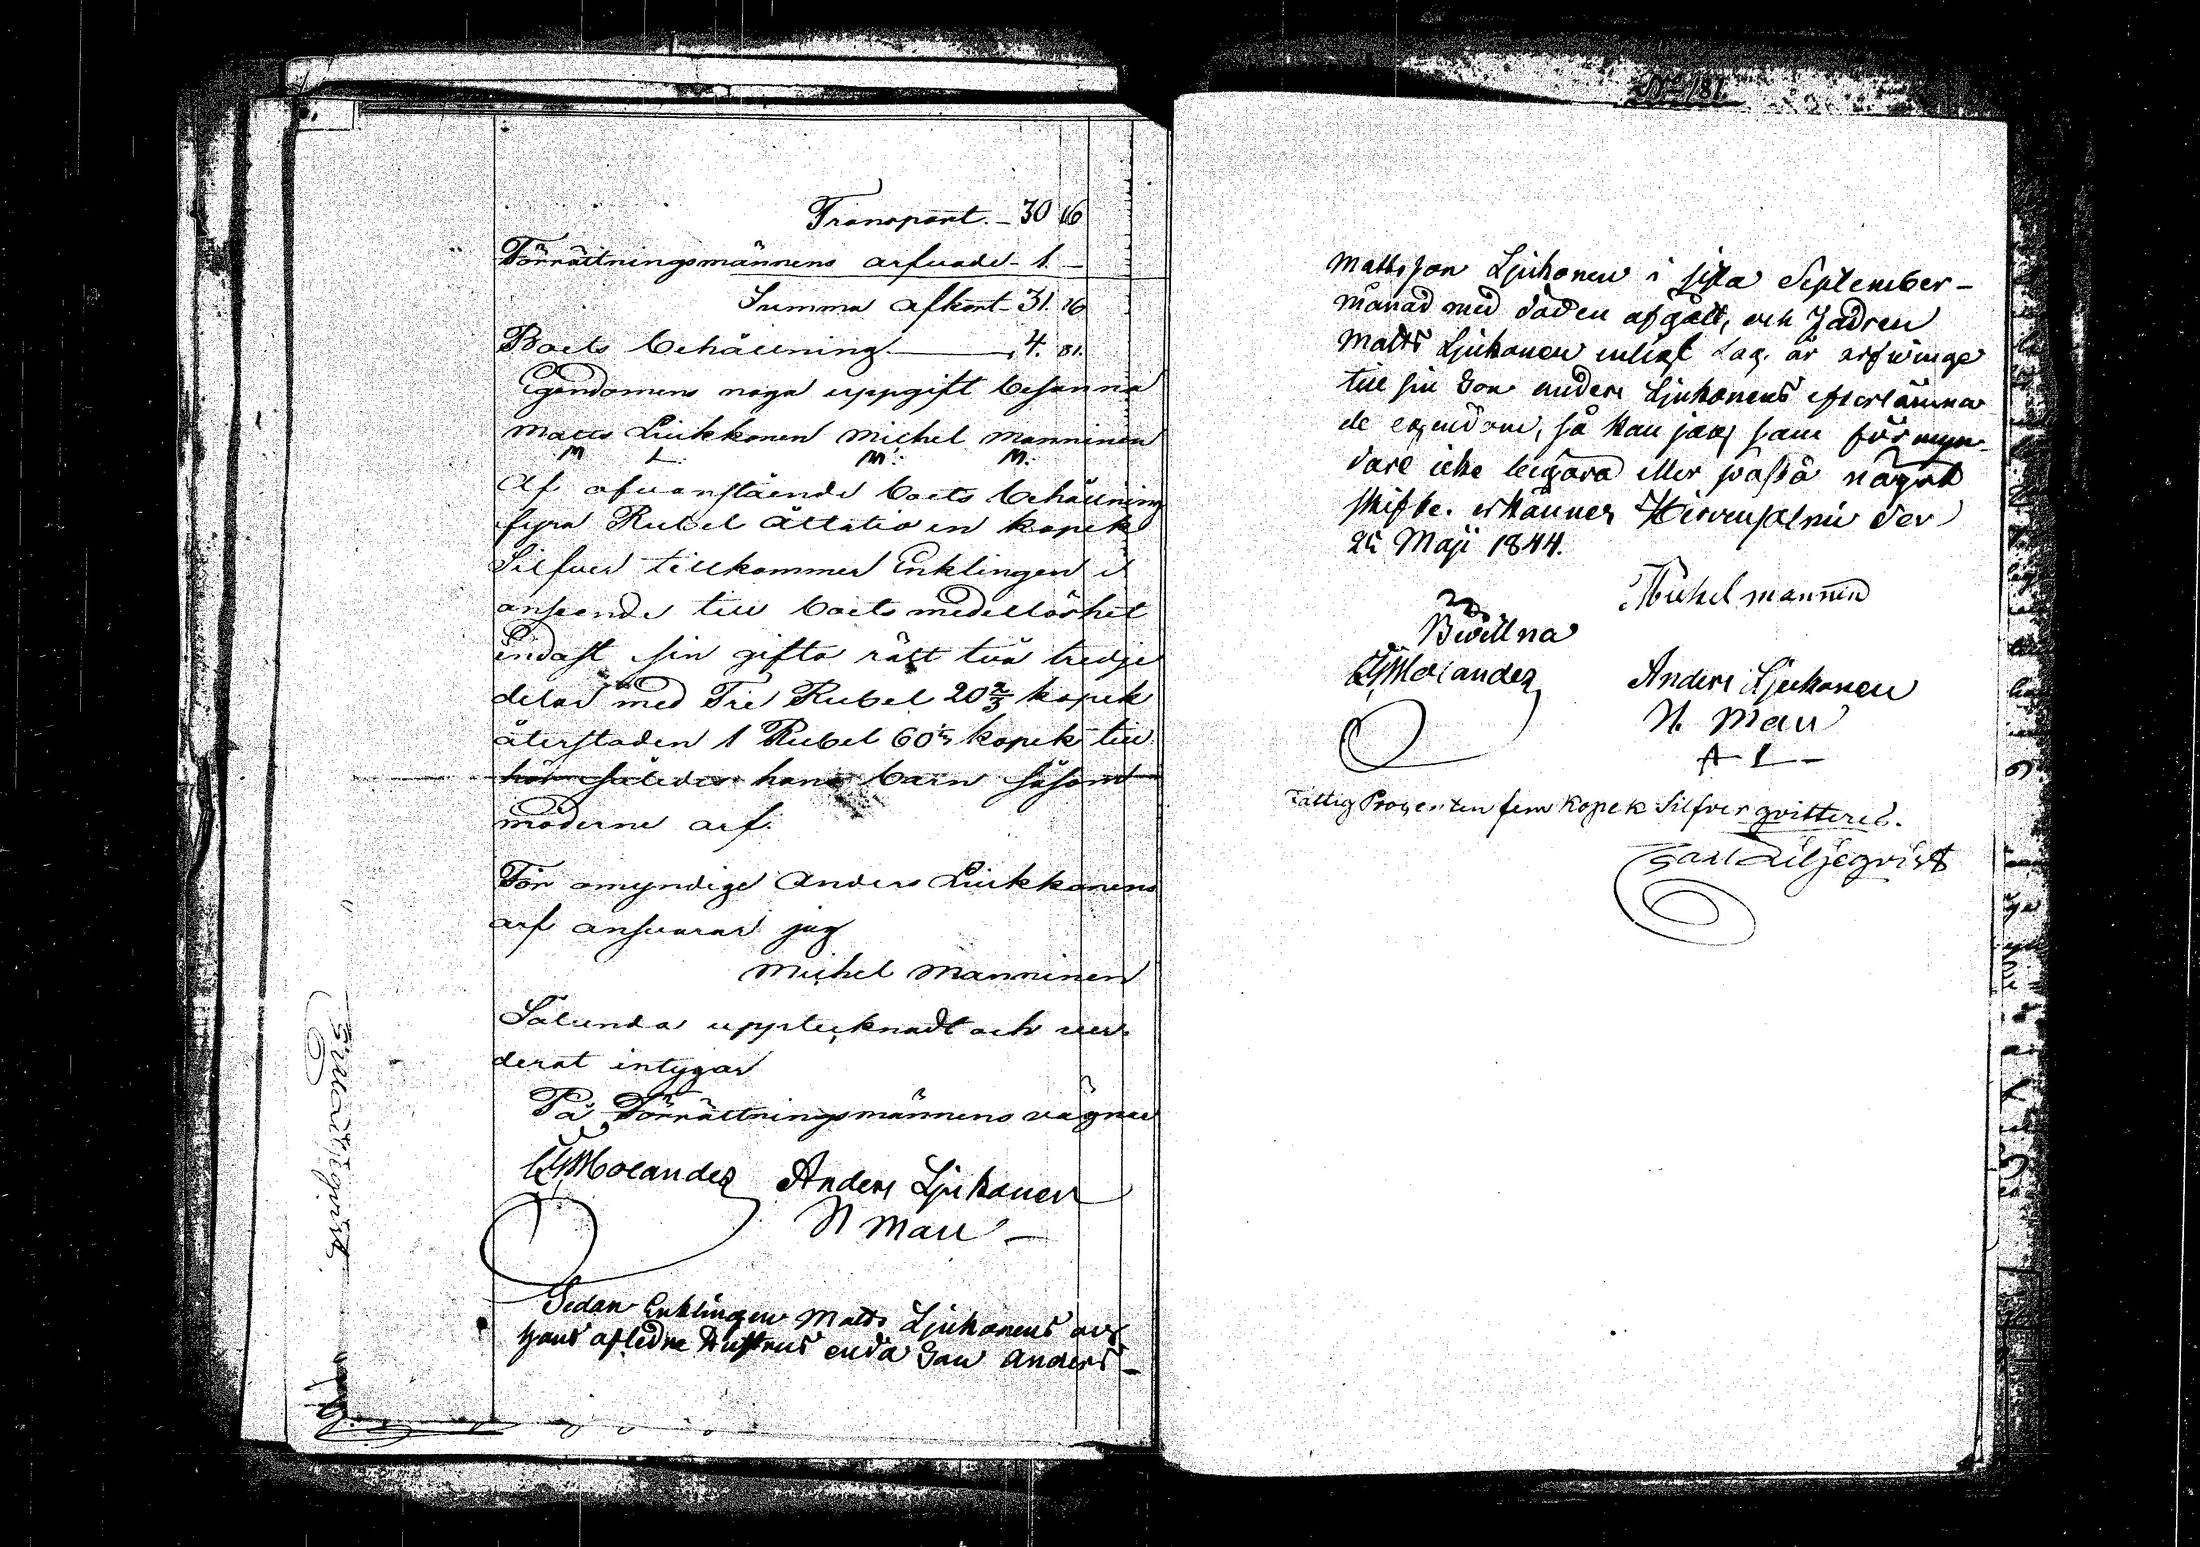 Transport. - 30 16
Förrättningsmännens arfvode - 1. -
Summa afkort - 31. 16
Boets behållning - 4. 81.
Egendomens noga uppgift besanna
Matts Liukkonen Michel Manninen
M L. M. M.
Af ofvanstående boets behållning
fyra Rubel åttatio en kopek
Silfver tillkommer Enklingen i
anseende till boets medellöshet
endast sin gifto rätt två tredje
delar med Tre Rubel 20 2/3 kopek
återstoden 1 Rubel 60 1/3 kopek till
hör således hans barn såsom
möderne arf.
För omyndige Anders Liukkonens
arf ansvarar jag
Michel Manninen
Sålunda upptecknadt och vär-
derat intygar
På Förrättningsmännens vägnar
Molander Anders Ljukonen
N Man -
Sedan Enklingen Matts Ljukonens och
hans afledne Hustrus enda Son Anders
No 181.
Mattsson Ljukonen i sista September-
månad med döden afgått, och Fadren
Matts Ljukonen enligt Lag är arfvinge
till sin Son Anders Ljukonens efterlämna
de egendom, så kan jag som förmyn-
dare icke begära eller påstå något
skifte. erkännes Hirvensalmi den
25 Maji 1844.
Michel Mannin
Bevittna
Molander Anders Ljukonen
N. Man
A L -
Fattig Procenten fem Kopek Silfver qvitteras.
Carl Liljeqvist